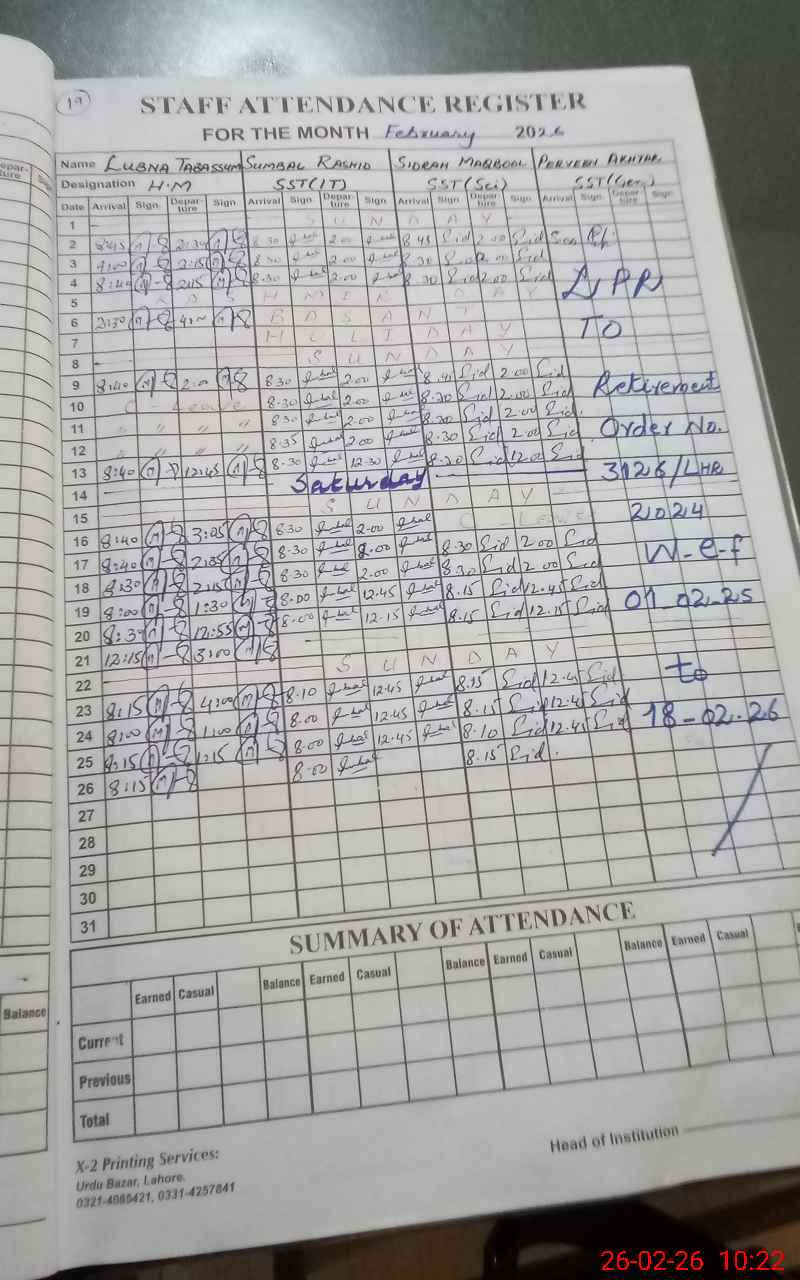 19
STAFF ATTENDANCE REGISTER
FOR THE MONTH February 2026
Name LUBNA TABASSUM SUMBAL RASHID SIDRAH MAQBOOL PERVEEN AKHTAR
Designation H.M SST(IT) SST(Sci) SST(Gen)
Date Arrival Sign. Depar-ture Sign. Arrival Sign. Depar-ture Sign. Arrival Sign. Depar-ture Sign. Arrival Sign. Depar-ture Sign.
1 S U N D A Y
2 8:45 2:34 8.30 2.00 8.45 Sid 2.00 Sid
3 9:00 2:15 8.30 2.00 8.30 Sid 2.00 Sid
4 8:40 2:15 8.30 2.00 8.30 Sid 2.00 Sid
LPR
5 K A S H M I R D A Y
6 2:30 B A S A N T
TO
7 H O L I D A Y
8 S U N D A Y
9 8:40 2:00 8.30 2.00 8.45 Sid 2.00 Sid
Retirement
10 C - Leave 8.30 2.00 8.30 Sid 2.00 Sid
11 " " " 8.30 2.00 8.30 Sid 2.00 Sid
Order No.
12 " " " 8.35 2.00 8.30 Sid 2.00 Sid
13 8:40 12:45 8.30 12.30 8.30 Sid 12.00 Sid
3126/LHR
14 Saturday
15 S U N D A Y
2024
16 8:40 3:05 8.30 2.00 C - Leave
17 8:40 2:35 8.30 2.00 8.30 Sid 2.00 Sid
W-e-f
18 8:30 2:15 8.30 2.00 8.30 Sid 2.00 Sid
19 8:00 1:30 8.00 12.45 8.15 Sid 12.45 Sid
01-02-25
20 8:30 12:55 8.00 12.15 8.15 Sid 12.15 Sid
21 12:15 3:00
22 S U N D A Y
to
23 8:15 4:00 8.10 12.45 8.15 Sid 12.45 Sid
24 8:00 1:00 8.00 12.45 8.15 Sid 12.45 Sid
18-02-26
25 8:15 1:15 8.00 12.45 8.10 Sid 12.45 Sid
26 8:15 8.00 8.15 Sid
27
28
29
30
31
SUMMARY OF ATTENDANCE
Earned Casual Balance Earned Casual Balance Earned Casual Balance Earned Casual
Current
Previous
Total
X-2 Printing Services:
Urdu Bazar, Lahore.
0321-4985421, 0331-4257841
Head of Institution
Balance
26-02-26 10:22